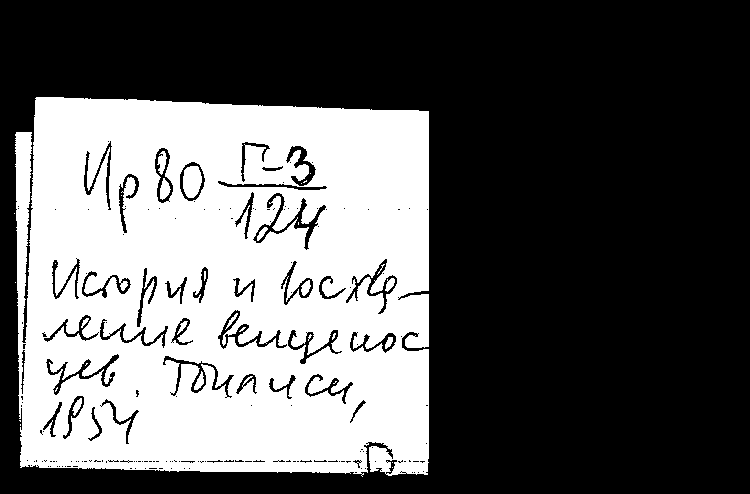 Ир 80 Г-3
124
История и восхва-
ление венценос
цев. Тбилиси,
1954